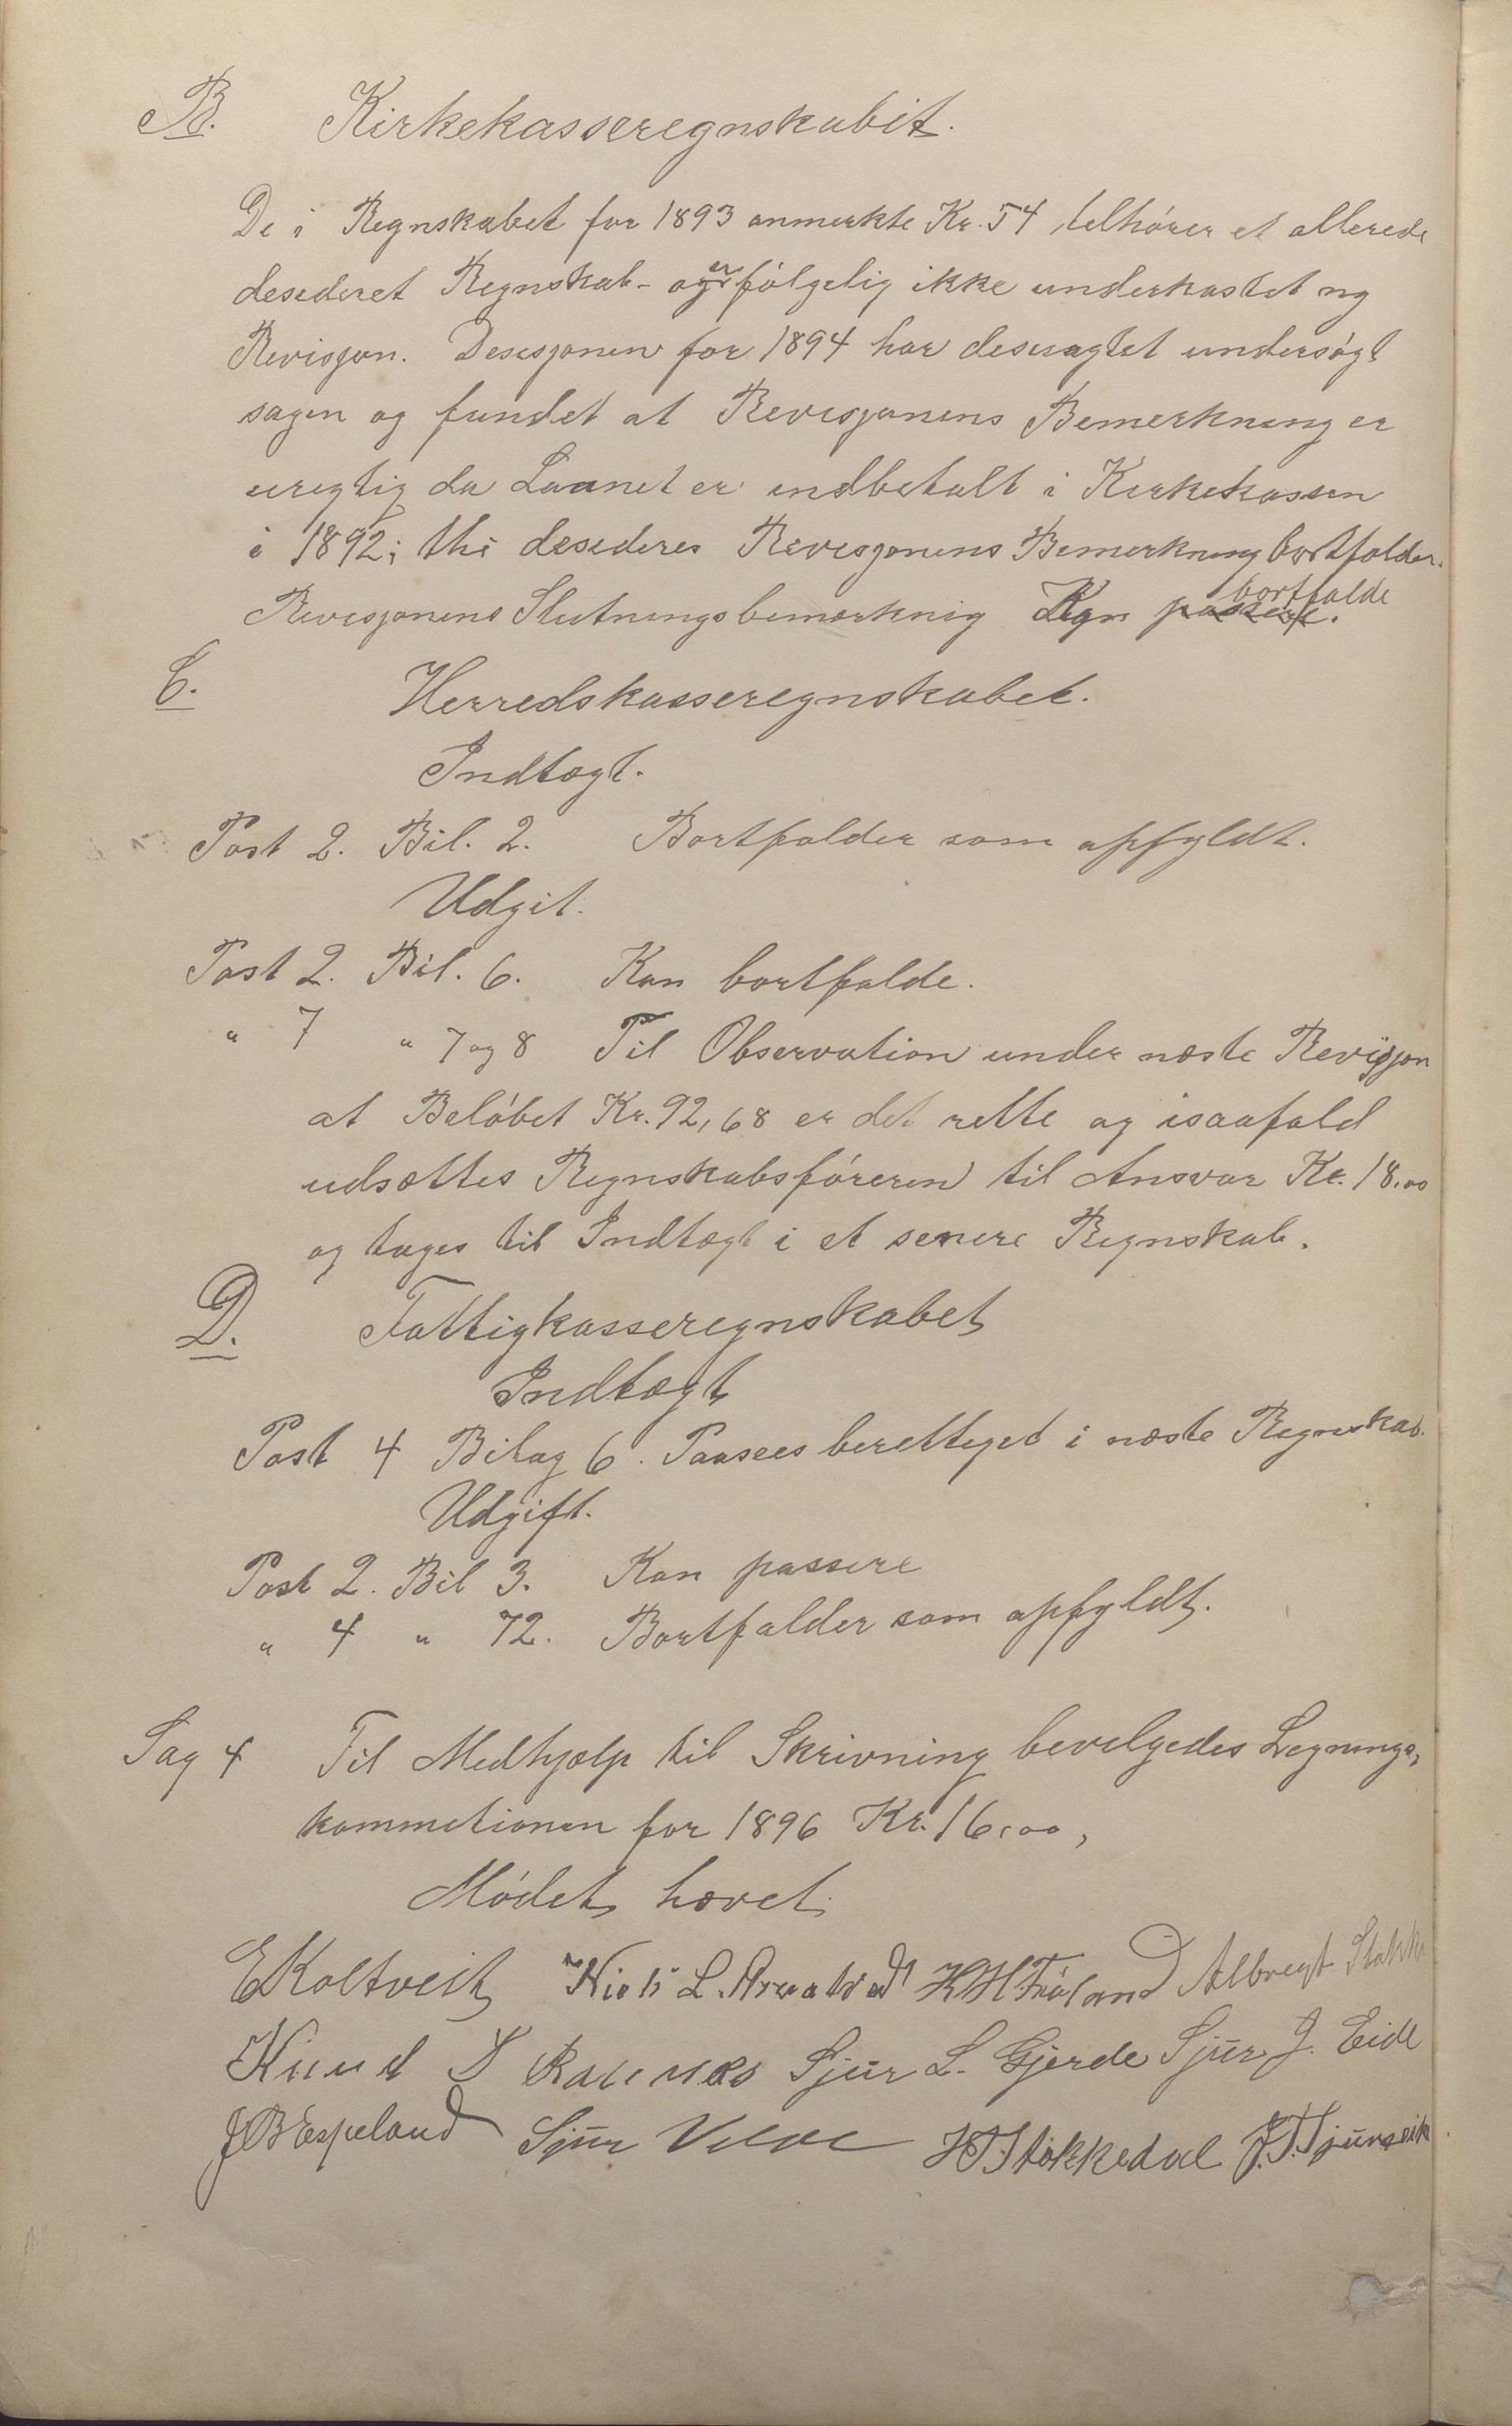 B. Kirkekasseregnskabet.
De i Regnskabet for 1893 anmerkte Kr. 54, telhører et allerede
desederet Regnskab - og er følgelig ikke underkastet ny
Revisjon. Desesjonen for 1894 har desuagtet undersøgt
sagen og fundet at Revesjonens Bemerkning er
uregtig da Laanet er indbetalt i Kerkekassen
i 1892; thi desederes Revesjonens Bemerkning bortfalder.
Revesjonens Slutningsbemærknig Kan passere. bortfalde
C. Herredskasseregnskabet.
Indtægt.
Post 2. Bil. 2. Bortfalder som opfyldt.
Udgit.
Post 2. Bil. 6. Kan bortfalde.
" 7 " 7 og 8 Til Observation under næste Revisjon
at Beløbet Kr. 92,68 er det rette og isaafald
udsættes Regnskabsføreren til Ansvar Kr. 18.00
og tages til Indtægt i et senere Regnskab.
D. Fattigkasseregnskabet
Indtægt
Post 4 Bilag 6. Paasees berettiget i næste Regnskab.
Udgift.
Post 2. Bil 3. Kan passere
" 4 " 72. Bortfalder som opfyldt.
Sag 4 Til Medhjælp til Skrivning bevelgedes Legnings-
kommetionen for 1896 Kr. 16,00,
Mødet hævet.
E Koltveit Niels L. H H Frøland Albregt
Knud Raunes Sjur L. Gjerde Sjur J. Eide
J B Espeland Sjur Velde H T Støkkedal J. T.